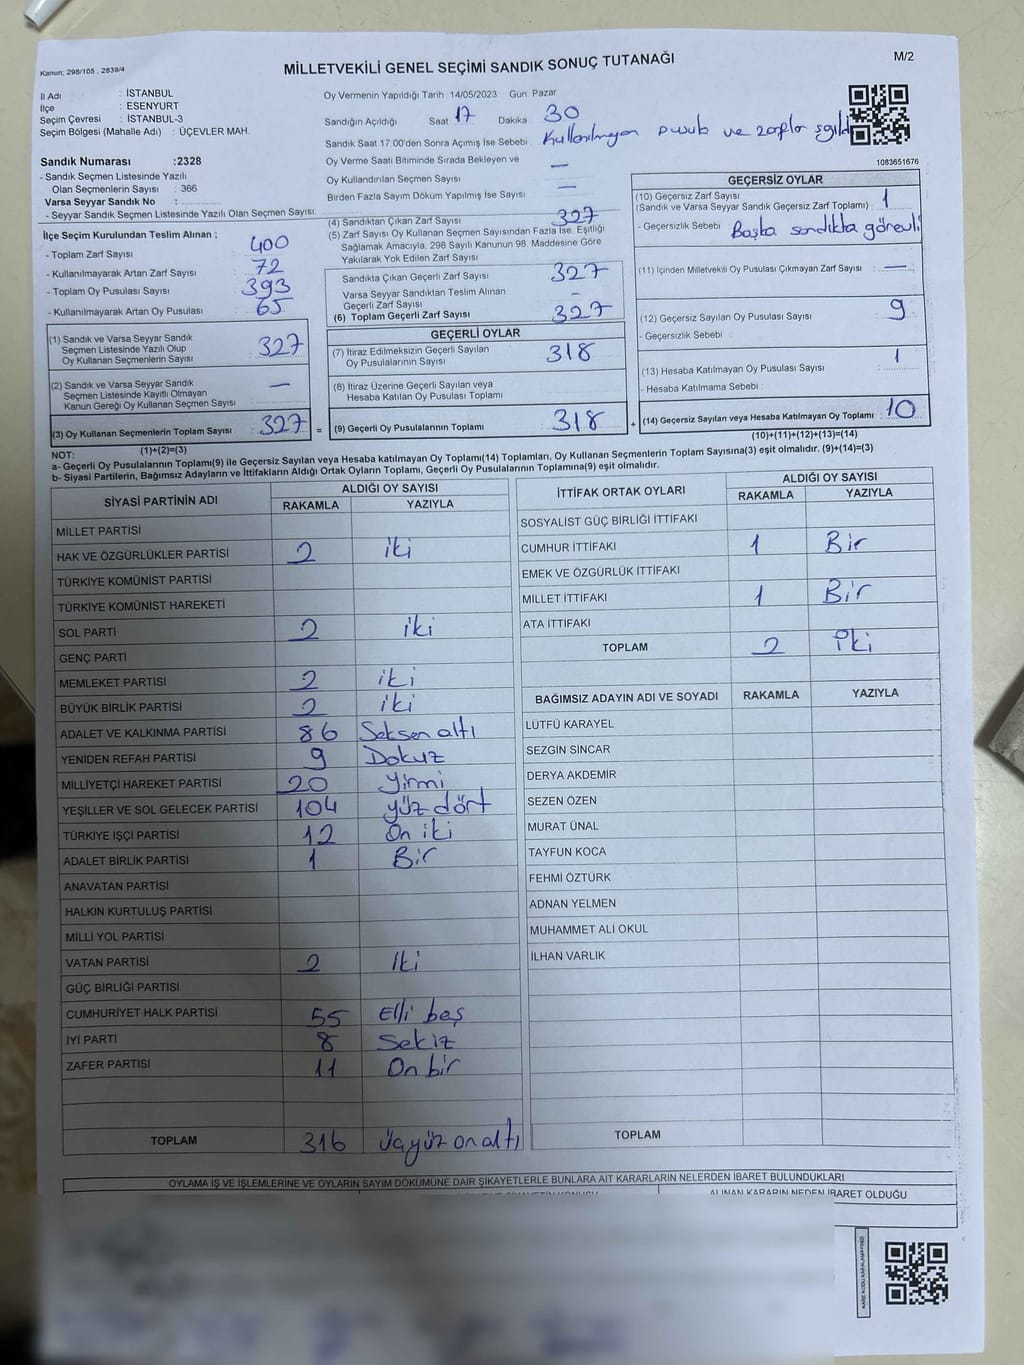 Kanun: 298/105 , 2839/4
MİLLETVEKİLİ GENEL SEÇİMİ SANDIK SONUÇ TUTANAĞI
M/2
İl Adı : İSTANBUL
İlçe : ESENYURT
Seçim Çevresi : İSTANBUL-3
Seçim Bölgesi (Mahalle Adı) : ÜÇEVLER MAH.
Sandık Numarası :2328
- Sandık Seçmen Listesinde Yazılı
Olan Seçmenlerin Sayısı : 366
Varsa Seyyar Sandık No :
- Seyyar Sandık Seçmen Listesinde Yazılı Olan Seçmen Sayısı:
Oy Vermenin Yapıldığı Tarih :14/05/2023 Gün: Pazar
Sandığın Açıldığı Saat 17 Dakika 30
Sandık Saat 17:00'den Sonra Açımış İse Sebebi Kullanılmayan pusula ve zarflar
Oy Verme Saati Bitiminde Sırada Bekleyen ve
Oy Kullandırılan Seçmen Sayısı —
Birden Fazla Sayım Döküm Yapılmış İse Sayısı —
1083651676
İlçe Seçim Kurulundan Teslim Alınan ;
- Toplam Zarf Sayısı : 400
- Kullanılmayarak Artan Zarf Sayısı : 72
- Toplam Oy Pusulası Sayısı : 393
- Kullanılmayarak Artan Oy Pusulası : 65
(1) Sandık ve Varsa Seyyar Sandık
Seçmen Listesinde Yazılı Olup
Oy Kullanan Seçmenlerin Sayısı : 327
(2) Sandık ve Varsa Seyyar Sandık
Seçmen Listesinde Kayıtlı Olmayan
Kanun Gereği Oy Kullanan Seçmen Sayısı : —
(3) Oy Kullanan Seçmenlerin Toplam Sayısı : 327
(1)+(2)=(3)
(4) Sandıktan Çıkan Zarf Sayısı : 327
(5) Zarf Sayısı Oy Kullanan Seçmen Sayısından Fazla İse, Eşitliği
Sağlamak Amacıyla, 298 Sayılı Kanunun 98. Maddesine Göre
Yakılarak Yok Edilen Zarf Sayısı
Sandıkta Çıkan Geçerli Zarf Sayısı : 327
Varsa Seyyar Sandıktan Teslim Alınan
Geçerli Zarf Sayısı : -
(6) Toplam Geçerli Zarf Sayısı : 327
GEÇERLİ OYLAR
(7) İtiraz Edilmeksizin Geçerli Sayılan
Oy Pusulalarının Sayısı : 318
(8) İtiraz Üzerine Geçerli Sayılan veya
Hesaba Katılan Oy Pusulası Toplamı :
= (9) Geçerli Oy Pusulalarının Toplamı : 318
GEÇERSİZ OYLAR
(10) Geçersiz Zarf Sayısı : 1
(Sandık ve Varsa Seyyar Sandık Geçersiz Zarf Toplamı)
- Geçersizlik Sebebi : Başka sandıkta görevli
(11) İçinden Milletvekili Oy Pusulası Çıkmayan Zarf Sayısı : —
(12) Geçersiz Sayılan Oy Pusulası Sayısı : 9
- Geçersizlik Sebebi :
(13) Hesaba Katılmayan Oy Pusulası Sayısı : 1
- Hesaba Katılmama Sebebi :
+ (14) Geçersiz Sayılan veya Hesaba Katılmayan Oy Toplamı : 10
(10)+(11)+(12)+(13)=(14)
NOT:
a- Geçerli Oy Pusulalarının Toplamı(9) ile Geçersiz Sayılan veya Hesaba katılmayan Oy Toplamı(14) Toplamları, Oy Kullanan Seçmenlerin Toplam Sayısına(3) eşit olmalıdır. (9)+(14)=(3)
b- Siyasi Partilerin, Bağımsız Adayların ve İttifakların Aldığı Ortak Oyların Toplamı, Geçerli Oy Pusulalarının Toplamına(9) eşit olmalıdır.
SİYASİ PARTİNİN ADI ALDIĞI OY SAYISI
RAKAMLA YAZIYLA
MİLLET PARTİSİ
HAK VE ÖZGÜRLÜKLER PARTİSİ 2 iki
TÜRKİYE KOMÜNİST PARTİSİ
TÜRKİYE KOMÜNİST HAREKETİ
SOL PARTİ 2 iki
GENÇ PARTİ
MEMLEKET PARTİSİ 2 iki
BÜYÜK BİRLİK PARTİSİ 2 iki
ADALET VE KALKINMA PARTİSİ 86 Seksen altı
YENİDEN REFAH PARTİSİ 9 Dokuz
MİLLİYETÇİ HAREKET PARTİSİ 20 yirmi
YEŞİLLER VE SOL GELECEK PARTİSİ 104 yüz dört
TÜRKİYE İŞÇİ PARTİSİ 12 On iki
ADALET BİRLİK PARTİSİ 1 Bir
ANAVATAN PARTİSİ
HALKIN KURTULUŞ PARTİSİ
MİLLİ YOL PARTİSİ
VATAN PARTİSİ 2 İki
GÜÇ BİRLİĞİ PARTİSİ
CUMHURİYET HALK PARTİSİ 55 Elli beş
İYİ PARTİ 8 Sekiz
ZAFER PARTİSİ 11 On bir
TOPLAM 316 üçyüz onaltı
İTTİFAK ORTAK OYLARI ALDIĞI OY SAYISI
RAKAMLA YAZIYLA
SOSYALİST GÜÇ BİRLİĞİ İTTİFAKI
CUMHUR İTTİFAKI 1 Bir
EMEK VE ÖZGÜRLÜK İTTİFAKI
MİLLET İTTİFAKI 1 Bir
ATA İTTİFAKI
TOPLAM 2 İki
BAĞIMSIZ ADAYIN ADI VE SOYADI RAKAMLA YAZIYLA
LÜTFÜ KARAYEL
SEZGİN SİNCAR
DERYA AKDEMİR
SEZEN ÖZEN
MURAT ÜNAL
TAYFUN KOCA
FEHMİ ÖZTÜRK
ADNAN YELMEN
MUHAMMET ALİ OKUL
İLHAN VARLIK
TOPLAM
OYLAMA İŞ VE İŞLEMLERİNE VE OYLARIN SAYIM DÖKÜMÜNE DAİR ŞİKAYETLERLE BUNLARA AİT KARARLARIN NELERDEN İBARET BULUNDUKLARI
ALINAN KARARIN NEDEN İBARET OLDUĞU
KARE KODU KARALAMAYINIZ!